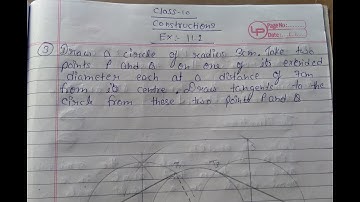 Class-10
Constructions
Ex:- 11.2
LP Page No:
Date:
③ Draw a circle of radius 3cm. Take two
points P and Q on one of its extended
diameter each at a distance of 7cm
from its centre. Draw tangents to the
circle from these two points P and Q